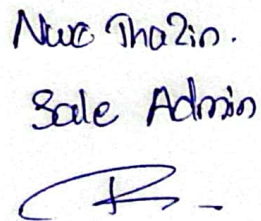 Nwe Thazin.
Sale Admin